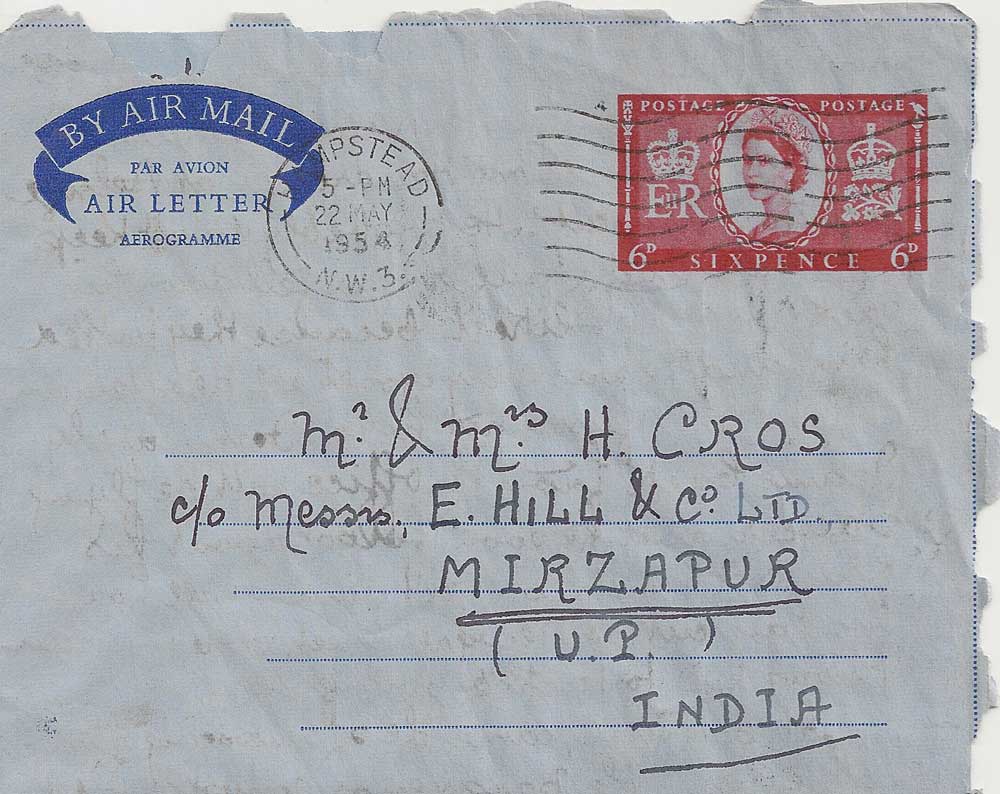 BY AIR MAIL
PAR AVION
AIR LETTER
AEROGRAMME
HAMPSTEAD
5 - PM
22 MAY
1954
N.W.3.
POSTAGE POSTAGE
E II R
6D SIXPENCE 6D
Mr. & Mrs H. CROS
c/o Messrs. E. HILL & Co. LTD.,
MIRZAPUR
( U.P. )
INDIA